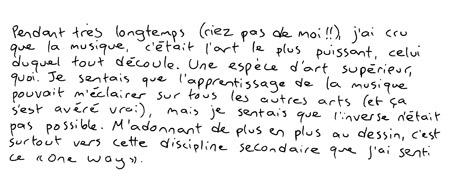 Pendant très longtemps (riez pas de moi!!), j'ai cru
que la musique, c'était l'art le plus puissant, celui
duquel tout découle. Une espèce d'art supérieur,
quoi. Je sentais que l'apprentissage de la musique
pouvait m'éclairer sur tous les autres arts (et ça
s'est avéré vrai), mais je sentais que l'inverse n'était
pas possible. M'adonnant de plus en plus au dessin, c'est
surtout vers cette discipline secondaire que j'ai senti
ce « One Way ».